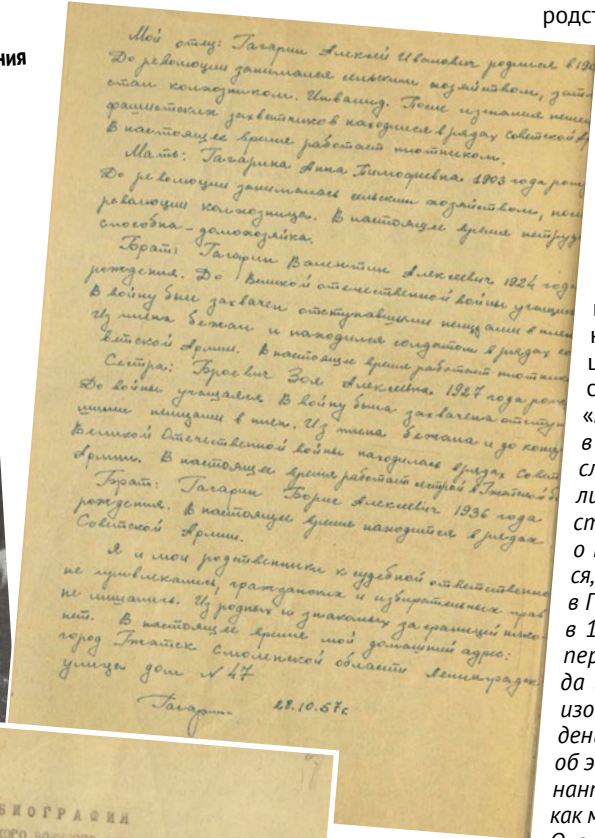 ния
родст
Мой отец: Гагарин Алексей Иванович родился в 190
До революции занимался сельским хозяйством, зат
стал колхозником. Инвалид. После изгнания немец
фашистских захватчиков находился в рядах Советской Ар
В настоящее время работает плотником.
Мать: Гагарина Анна Тимофеевна 1903 года рож
До революции занималась сельским хозяйством, посл
революции колхозница. В настоящее время нетрудо
способна – домохозяйка.
Брат: Гагарин Валентин Алексеевич 1924 года
рождения. До Великой отечественной войны учащийс
В войну был захвачен отступавшими немцами в плен
Из плена бежал и находился солдатом в рядах со
ветской Армии. В настоящее время работает плотнико
Сестра: Бросвич Зоя Алексеевна 1927 года рожд
До войны учащаяся. В войну была захвачена отступ
шими немцами в плен. Из плена бежала и до конца
Великой Отечественной войны находилась в рядах Совет
Армии. В настоящее время работает сестрой в Гжатской бо
Брат: Гагарин Борис Алексеевич 1936 года
рождения. В настоящее время находится в рядах
Советской Армии.
Я и мои родственники к судебной ответственно
не привлекались, гражданских и избирательных прав
не лишались. Из родных и знакомых за границей нико-
нет. В настоящее время мой домашний адрес:
город Гжатск Смоленской области Ленинградск
улица дом № 47
Гагарин 28.10.57г
БИОГРАФИЯ
в
сл
ли
ст
о
ся,
в Г
в 1
пер
да
изо
ден
об э
нант
как м